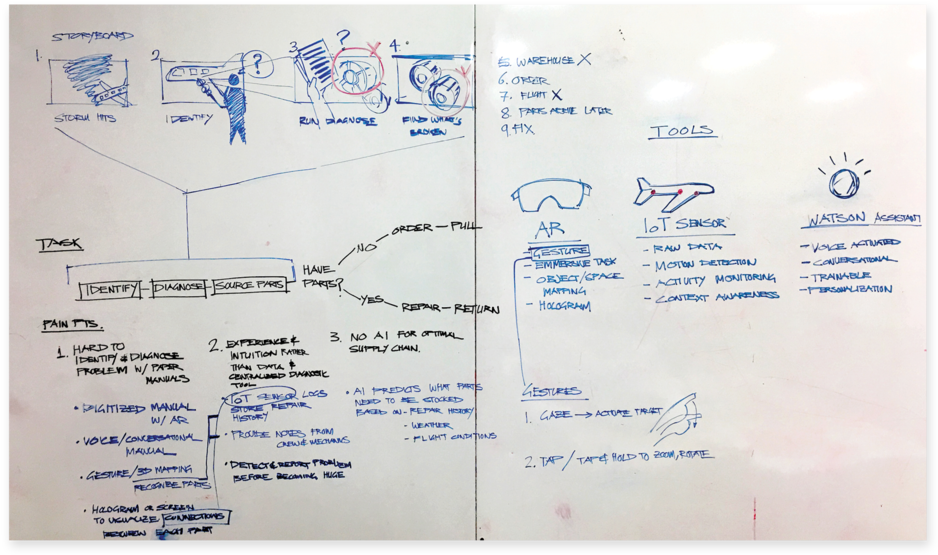 STORYBOARD
1.
2.
3
4.
?
?
STORM HITS
IDENTIFY
RUN DIAGNOSE
FIND WHAT'S
BROKEN
5. WAREHOUSE X
6. ORDER
7. FLIGHT X
8. PARTS ARRIVE LATER
9. FIX
TASK
IDENTIFY
DIAGNOSE
SOURCE PARTS
HAVE
PARTS?
NO
ORDER - PULL
YES
REPAIR - RETURN
PAIN PTS.
1. HARD TO
IDENTIFY & DIAGNOSE
PROBLEM W/ PAPER
MANUALS
• DIGITIZED MANUAL
W/ AR
• VOICE/CONVERSATIONAL
MANUAL
• GESTURE/3D MAPPING
RECOGNIZE PARTS
• HOLOGRAM OR SCREEN
TO VISUALIZE CONNECTIONS
BETWEEN EACH PART
2. EXPERIENCE &
INTUITION RATHER
THAN DATA &
CENTRALIZED DIAGNOSTIC
TOOL
• IoT SENSOR LOGS
STORE REPAIR
HISTORY
• PROVIDE NOTES FROM
CREW & MECHANICS
• DETECT & REPORT PROBLEM
BEFORE BECOMING HUGE
3. NO AI FOR OPTIMAL
SUPPLY CHAIN.
• AI PREDICTS WHAT PARTS
NEED TO BE STOCKED
BASED ON - REPAIR HISTORY
- WEATHER
- FLIGHT CONDITIONS
TOOLS
AR
- GESTURE
- EMMERSIVE TASK
- OBJECT/SPACE
MAPPING
- HOLOGRAM
IoT SENSOR
- RAW DATA
- MOTION DETECTION
- ACTIVITY MONITORING
- CONTEXT AWARENESS
WATSON ASSISTANT
- VOICE ACTIVATED
- CONVERSATIONAL
- TRAINABLE
- PERSONALIZATION
GESTURES
1. GAZE → ACTIVATE TARGET
2. TAP / TAP & HOLD TO ZOOM, ROTATE